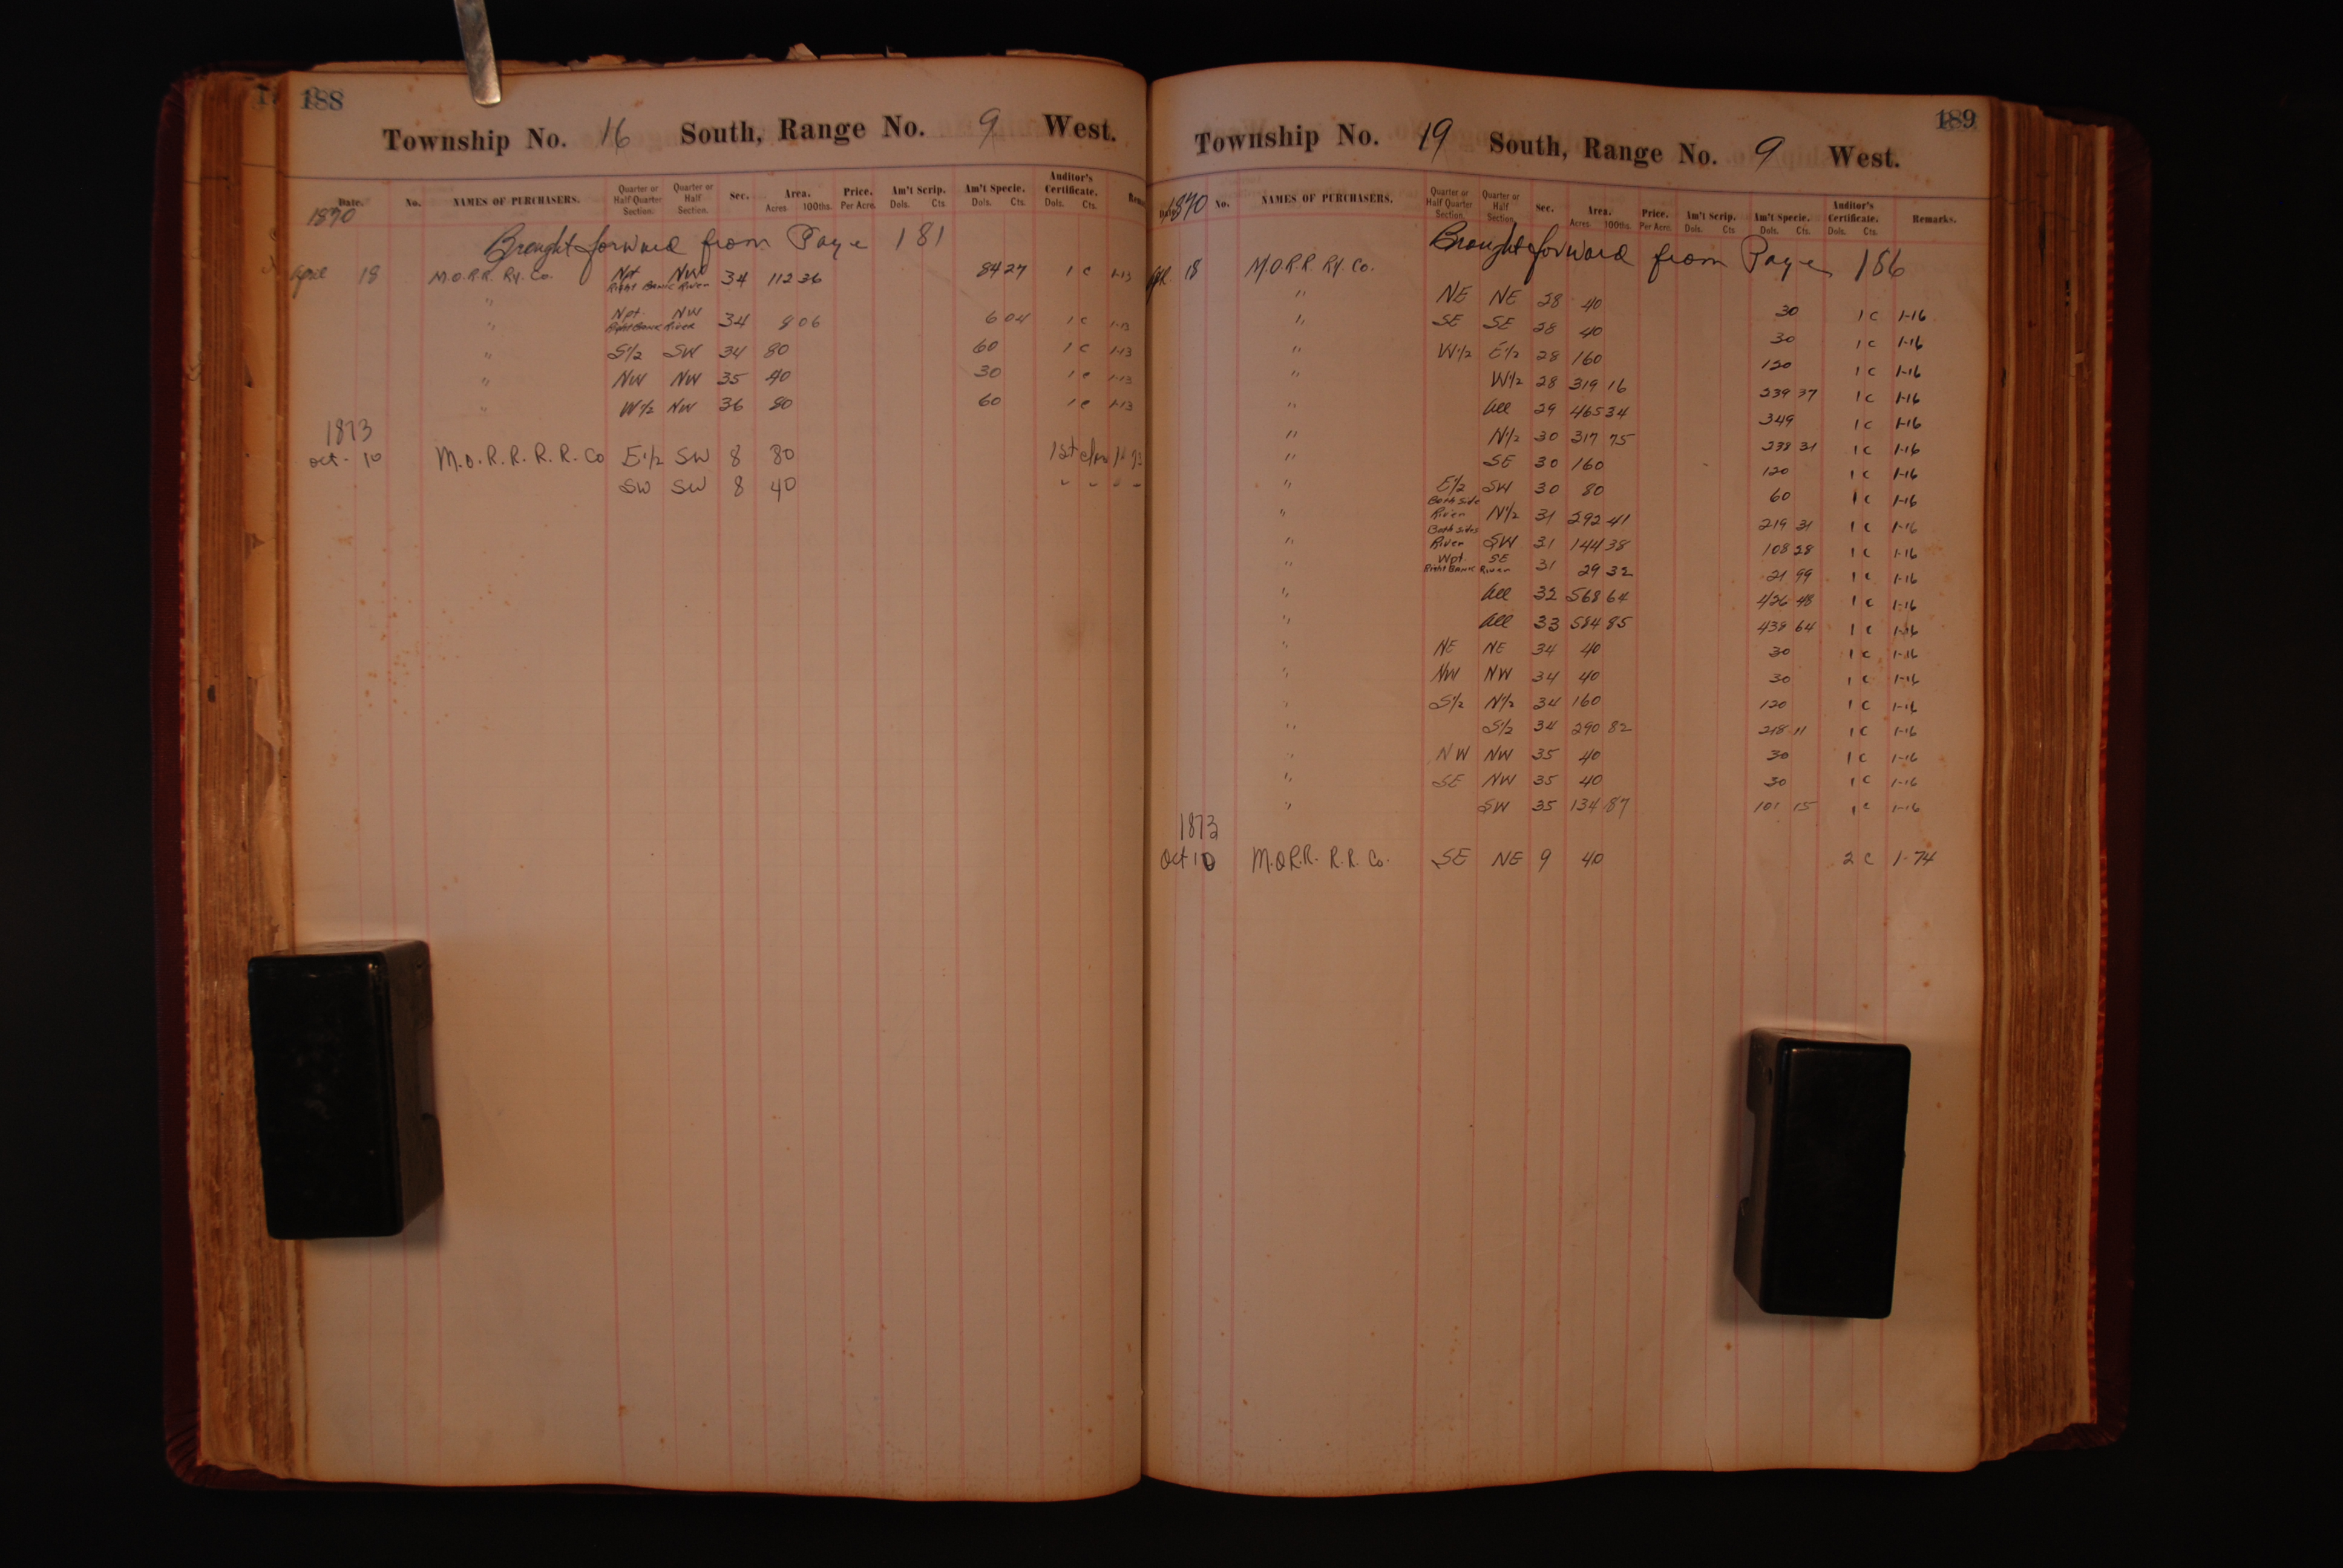 188
Township No. 16 South, Range No. 9 West.
Date. No. NAMES OF PURCHASERS. Quarter or Half Quarter Section. Quarter or Half Section. Sec. Area. Acres 100ths. Price. Per Acre. Am't Scrip. Dols. Cts. Am't Specie. Dols. Cts. Auditor's Certificate. Dols. Cts.
1870
Brought forward from Page 181
April 18 M.O.R.R. Ry. Co. Npt Right Bank River NW 34 112 36 84 27 1 c 1-13
" Npt. Right Bank River NW 34 8 06 6 04 1 c 1-13
" S1/2 SW 34 80 60 1 c 1-13
" NW NW 35 40 30 1 c 1-13
" W1/2 NW 36 80 60 1 c 1-13
1873
Oct. 10 M.O.R.R. R.R. Co E1/2 SW 8 80 1st
SW SW 8 40 " " " "
189
Township No. 19 South, Range No. 9 West.
1870 No. NAMES OF PURCHASERS. Quarter or Half Quarter Section. Quarter or Half Section. Sec. Area. Acres 100ths. Price. Per Acre. Am't Scrip. Dols. Cts Am't Specie. Dols. Cts. Auditor's Certificate. Dols. Cts. Remarks.
Brought forward from Page 186
Apl. 18 M.O.R.R. Ry. Co. NE NE 28 40 30 1 c 1-16
" SE SE 28 40 30 1 c 1-16
" W1/2 E1/2 28 160 120 1 c 1-16
" W1/2 28 319 16 239 37 1 c 1-16
" All 29 465 34 349 1 c 1-16
" N1/2 30 317 75 238 31 1 c 1-16
" SE 30 160 120 1 c 1-16
" E1/2 SW 30 80 60 1 c 1-16
" Both Side River N1/2 31 292 41 219 31 1 c 1-16
" Both Sides River SW 31 144 38 108 28 1 c 1-16
" Wpt. Right Bank River SE 31 29 32 21 99 1 c 1-16
" All 32 568 64 426 48 1 c 1-16
" All 33 584 85 438 64 1 c 1-16
" NE NE 34 40 30 1 c 1-16
" NW NW 34 40 30 1 c 1-16
" S1/2 N1/2 34 160 120 1 c 1-16
" S1/2 34 290 82 218 11 1 c 1-16
" NW NW 35 40 30 1 c 1-16
" SE NW 35 40 30 1 c 1-16
" SW 35 134 87 101 15 1 c 1-16
1873
Oct 10 M.O.R.R. R.R. Co. SE NE 9 40 2 c 1-74